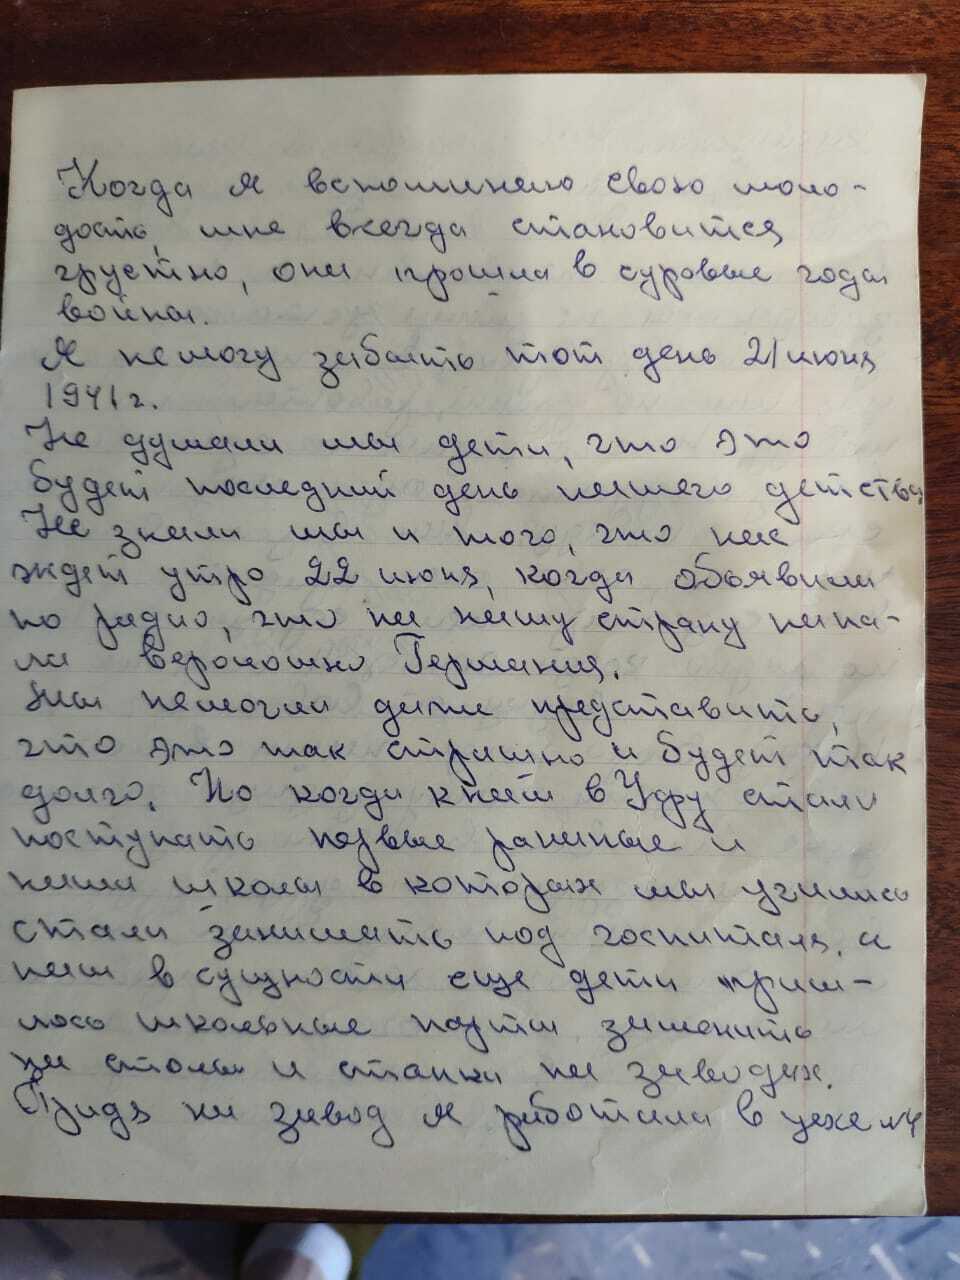 Когда я вспоминаю свою моло-
дость, мне всегда становится
грустно, она прошла в суровые годы
войны.
Я немогу забыть тот день 21 июня
1941 г.
Не думали мы дети, что это
будет последний день нашего детства
Не знали мы и того, что нас
ждет утро 22 июня, когда объявили
по радио, что на нашу страну напа-
ла вероломно Германия.
Мы немогли даже представить,
что это так страшно и будет так
долго. Но когда к нам в Уфу стали
поступать первые раненые и
наши школы в которых мы учились
стали занимать под госпиталя, а
нам в сущности еще дети приш-
лось школьные парты заменить
на столы и станки на заводах.
Придя на завод я работала в цехе №4